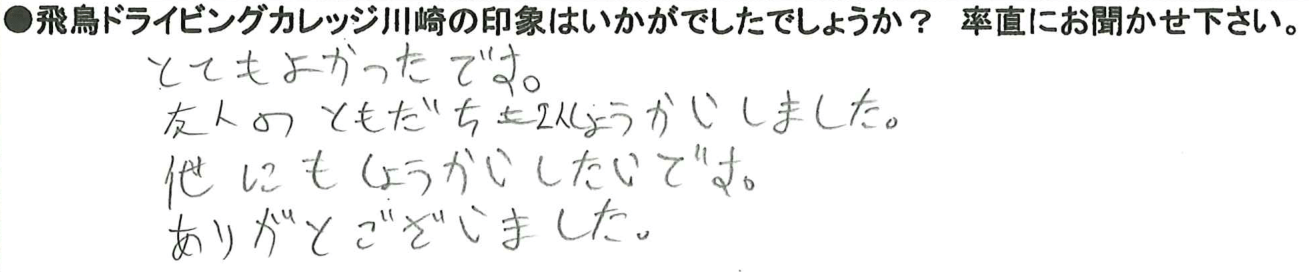 ●飛鳥ドライビングカレッジ川崎の印象はいかがでしたでしょうか？　率直にお聞かせ下さい。
とてもよかったです。
友人のともだちを2人しょうかいしました。
他にもしょうかいしたいです。
ありがとございました。